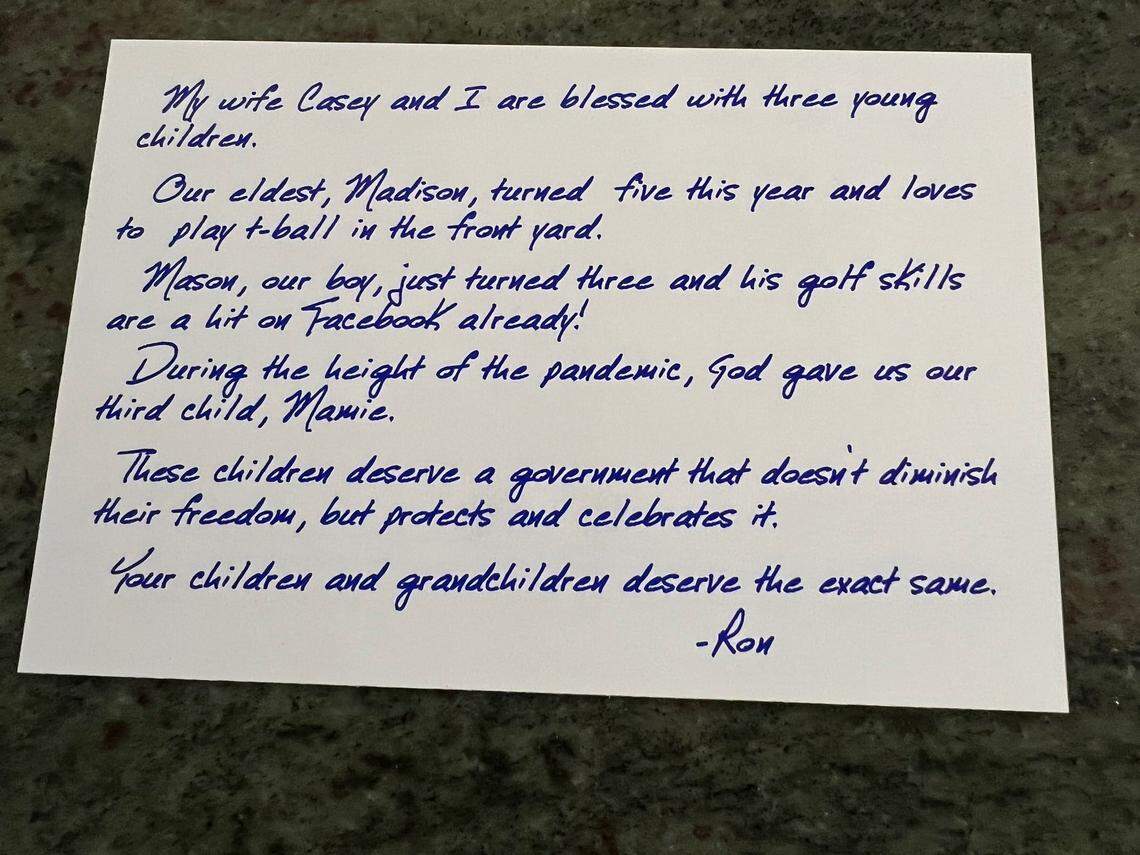 My wife Casey and I are blessed with three young
children.
Our eldest, Madison, turned five this year and loves
to play t-ball in the front yard.
Mason, our boy, just turned three and his golf skills
are a hit on Facebook already!
During the height of the pandemic, God gave us our
third child, Mamie.
These children deserve a government that doesn't diminish
their freedom, but protects and celebrates it.
Your children and grandchildren deserve the exact same.
-Ron